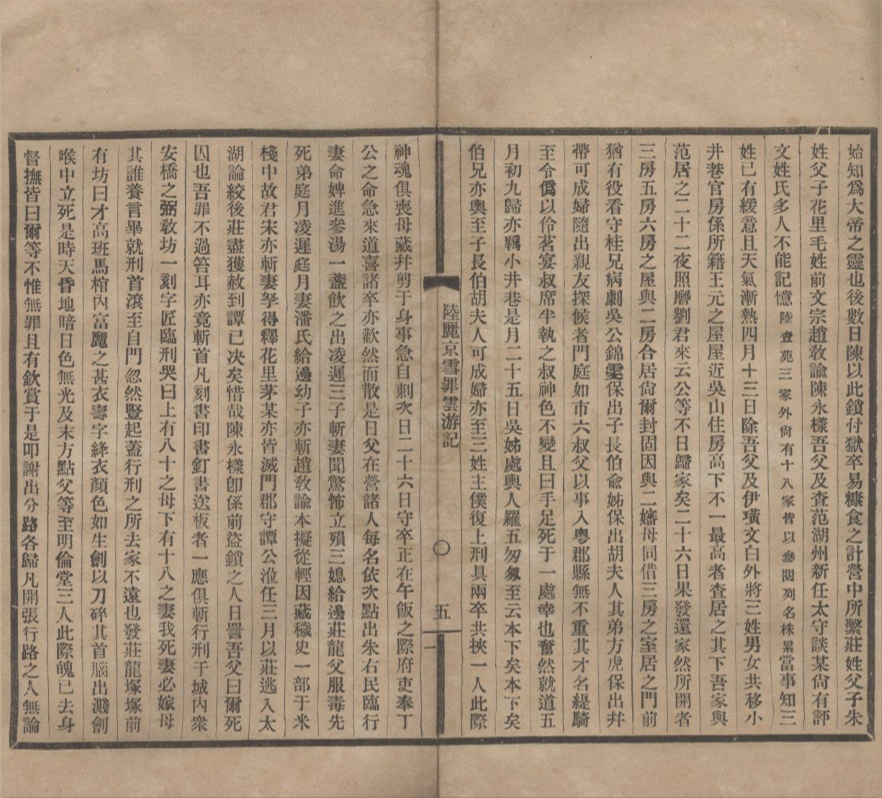 始知爲大帝之靈也後數日陳以此鎖付獄卒易糠食之計營中所繫莊姓父子朱
姓父子花里毛姓前文宗趙敎諭陳永樣吾父及查范湖州新任太守談某尙有評
文姓氏多人不能記憶陸查范三家外尙有十八家皆以參閱列名株累當事知三
姓已有緩意且天氣漸熱四月十三日除吾父及伊璜文白外將三姓男女共移小
井巷官房係所籍王元之屋屋近吳山住房高下不一最高者查居之其下吾家與
范居之二十二夜照磨劉君來云公等不日歸家矣二十六日果發還家然所開者
三房五房六房之屋與二房合居尙爾封固因與二嬸母同借三房之室居之門前
猶有役看守桂兄病劇吳公錦雯保出子長伯兪姊保出胡夫人其弟方虎保出幷
帶可成婦隨出親友探候者門庭如市六叔父以事入粵郡縣無不重其才名緹騎
至令僞以伶茗宴叔席半執之叔神色不變且曰手足死于一處幸也奮然就道五
月初九歸亦羈小井巷是月二十五日吳姊處與人羅五匆匆至云本下矣本下矣
伯兄亦輿至子長伯胡夫人可成婦亦至三姓主僕復上刑具兩卒共挾一人此際
陸麗京雪罪雲游記
〇
五
神魂俱喪母藏幷剪于身事急自刺次日二十六日守卒正在午飯之際府吏奉丁
公之命急來道喜諸卒亦歡然而散是日父在營諸人每名依次點出朱右民臨行
妻命婢進參湯一盞飲之出凌遲三子斬妻聞驚怖立殞三媳給邊莊龍父服毒先
死弟庭月凌遲庭月妻潘氏給邊幼子亦斬趙敎諭本擬從輕因藏穢史一部于米
棧中故君宋亦斬妻孥得釋花里茅某亦皆滅門郡守譚公涖任三月以莊逃入太
湖論絞後莊盡獲赦到譚已決矣惜哉陳永樸卽係前盜鎖之人日詈吾父曰爾死
囚也吾罪不過笞耳亦竟斬首凡刻書印書釘書送板者一應俱斬行刑于城內衆
安橋之弼敎坊一刻字匠臨刑哭曰上有八十之母下有十八之妻我死妻必嫁母
其誰養言畢就刑首滾至自門忽然豎起蓋行刑之所去家不遠也發莊龍塚塚前
有坊曰才高班馬棺內富麗之甚衣壽字綘衣顏色如生創以刀碎其首腦出濺創
喉中立死是時天昏地暗日色無光及末方點父等至明倫堂三人此際魄已去身
督撫皆曰爾等不惟無罪且有欽賞于是叩謝出分路各歸凡開張行路之人無論